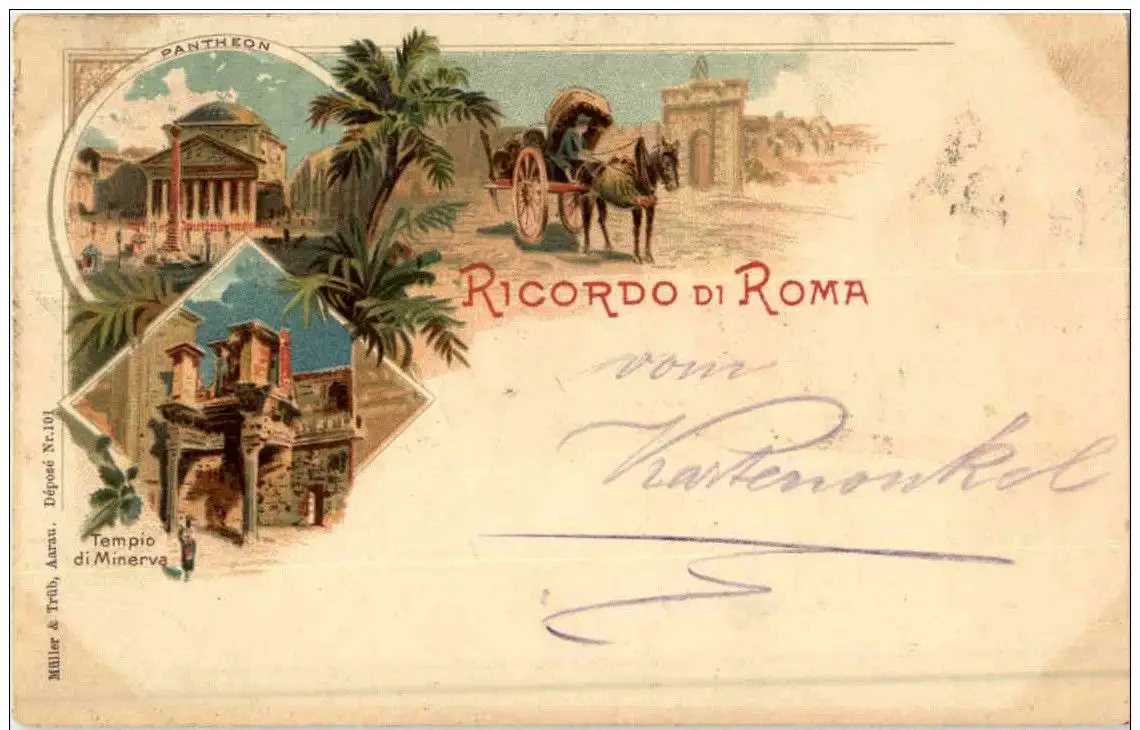 PANTHEON
RICORDO DI ROMA
vom
Kartenonkel
Tempio
di Minerva
Müller & Trüb, Aarau. Déposé Nr.101